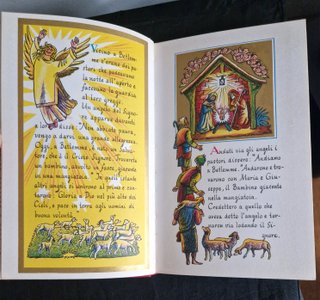 Vicino a Betlem-
me v'erano dei pa-
stori che passavano
la notte all'aperto e
facevano la guardia
ai loro greggi.
Un angelo del Signo-
re apparve davanti
e disse: "Non abbiate paura,
vengo a darvi una grande allegrezza.
Oggi, a Betlemme, è nato un Salva-
tore, che è il Cristo Signore. Troverete
un bambino, avvolto in fasce, giacente
in una mangiatoia". E subito
altri angeli si unirono al primo e can-
tarono: "Gloria a Dio nel più alto dei
Cieli, e pace in terra agli uomini di
buona volontà".
Andati via gli angeli i
pastori dissero: "Andiamo
a Betlemme". Andarono e tro-
varono con Maria e Giu-
seppe, il Bambino giacente
nella mangiatoia.
Credettero a quello che
aveva detto l'angelo e torna-
rono via lodando il Si-
gnore.